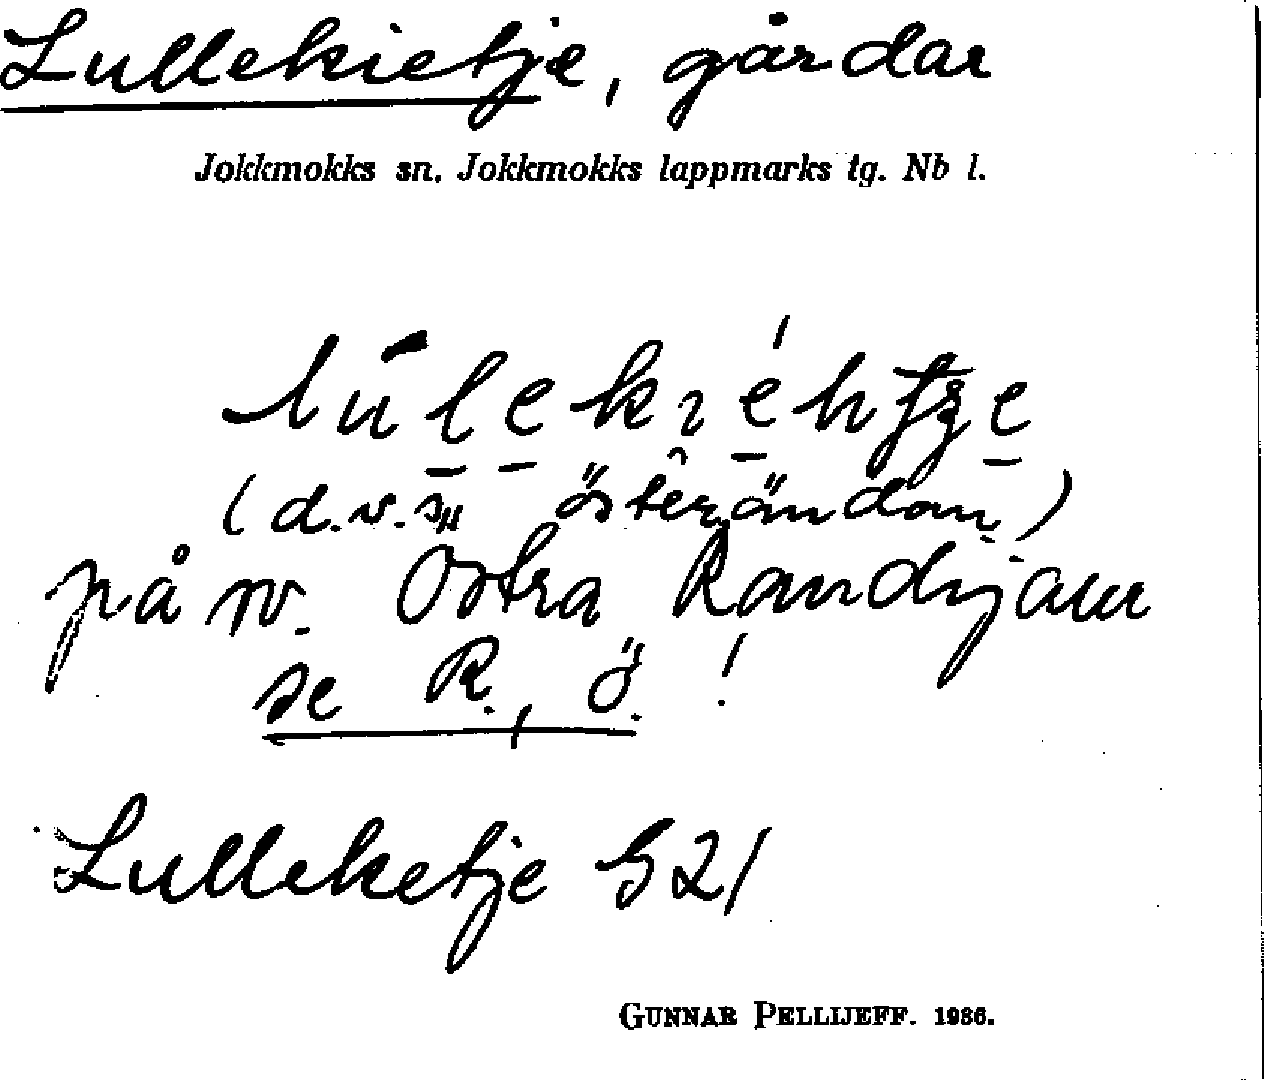 Lullekietje, gårdar
Jokkmokks sn. Jokkmokks lappmarks tg. Nb l.
(d.v.s. "österändan")
på n. Östra Randijaur
se R., ö. !
Lulleketje 521
GUNNAR PELLIJEFF. 1936.